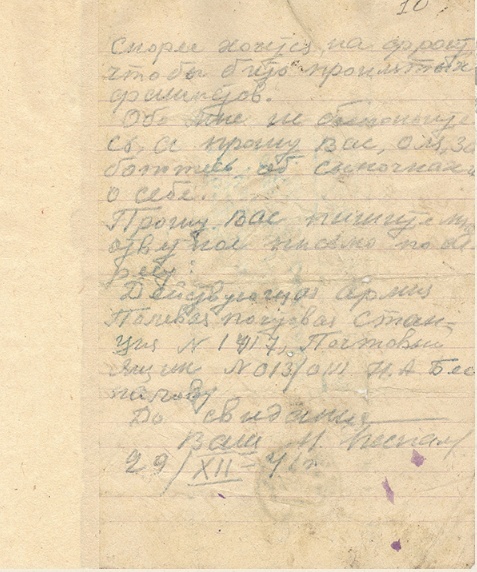 10
Скорее хочется на фронт
чтобы бить проклятых
фашистов.
Обо мне не беспокойте
сь, а прошу Вас, Оля, за
ботьтесь об сыночках и
о себе.
Прошу Вас пишите мне
ответное письмо по ад
ресу:
Действующая Армия
Полевая почтовая стан-
ция N 1717, Почтовый
ящик N 013/ Н. А Бес
палову
До свидания
Ваш Н. Беспал
29/XII - 41 г.